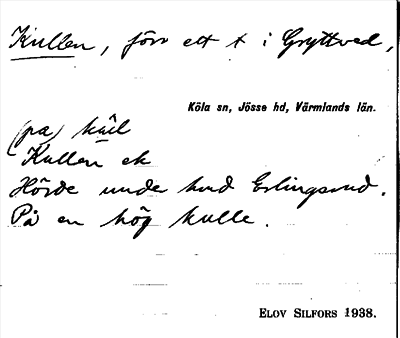 Kullen, förr ett t i Gryttved,
Köla sn, Jösse hd, Värmlands län.
(pa) kúl
Kullen ek
Hörde unde hmd Erlingsrud.
På en hög kulle.
ELOV SILFORS 1938.